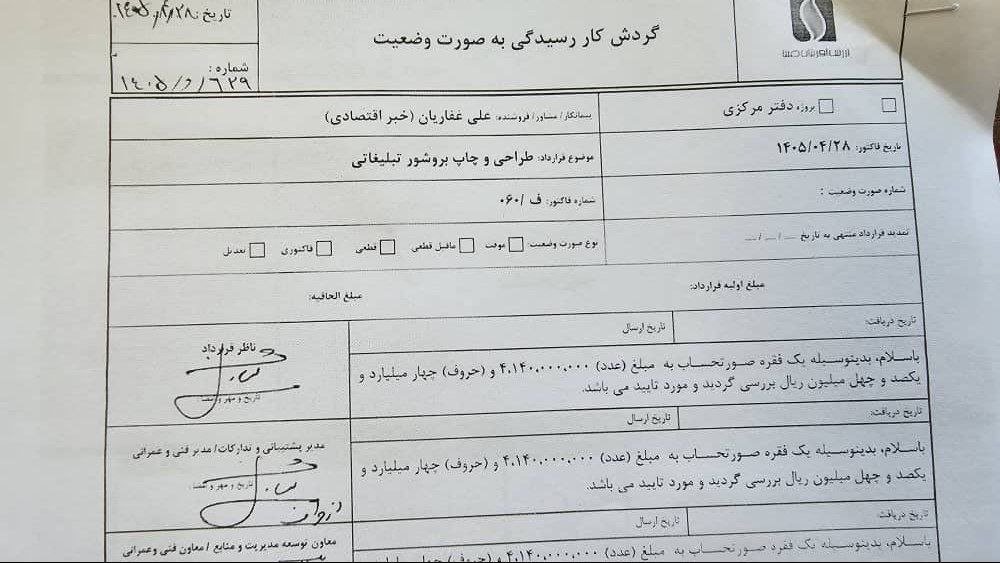 گردش کار رسیدگی به صورت وضعیت
تاریخ:
شماره:
پروژه دفتر مرکزی
پیمانکار/ مشاور/ فروشنده: علی غفاریان (خبر اقتصادی)
تاریخ فاکتور: ۱۴۰۵/۰۴/۲۸
موضوع قرارداد: طراحی و چاپ بروشور تبلیغاتی
شماره صورت وضعیت :
شماره فاکتور: ف /۰۶۰
تمدید قرارداد منتهی به تاریخ .... / .... / ....
نوع صورت وضعیت: موقت ماقبل قطعی قطعی فاکتوری تعدیل
مبلغ اولیه قرارداد: مبلغ الحاقیه:
تاریخ دریافت: تاریخ ارسال
ناظر قرارداد
باسلام، بدینوسیله یک فقره صورتحساب به مبلغ (عدد) ۴،۱۴۰،۰۰۰،۰۰۰ و (حروف) چهار میلیارد و
یکصد و چهل میلیون ریال بررسی گردید و مورد تایید می باشد.
تاریخ و مهر و امضا
تاریخ دریافت: تاریخ ارسال
مدیر پشتیبانی و تدارکات/ مدیر فنی و عمرانی
باسلام، بدینوسیله یک فقره صورتحساب به مبلغ (عدد) ۴،۱۴۰،۰۰۰،۰۰۰ و (حروف) چهار میلیارد و
یکصد و چهل میلیون ریال بررسی گردید و مورد تایید می باشد.
تاریخ و مهر و امضا
تاریخ دریافت: تاریخ ارسال
معاون توسعه مدیریت و منابع / معاون فنی وعمرانی
باسلام، بدینوسیله یک فقره صورتحساب به مبلغ (عدد) ۴،۱۴۰،۰۰۰،۰۰۰ و (حروف) چهار میلیارد